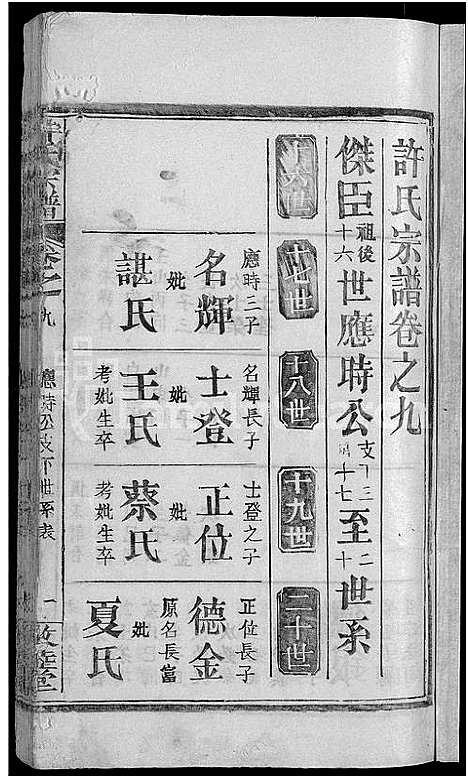 許氏宗譜卷之九
傑臣祖後十六世應時公支下三十七至二十世系
十六世
十七世
十八世
十九世
二十世
應時三子
名輝
妣
諶氏
名輝長子
士登
妣
王氏
考妣生卒
士登之子
正位
妣
蔡氏
考妣生卒
正位長子
德金
原名長富
妣
夏氏
許氏宗譜
卷之九
應時公支下世系表
一
敦睦堂